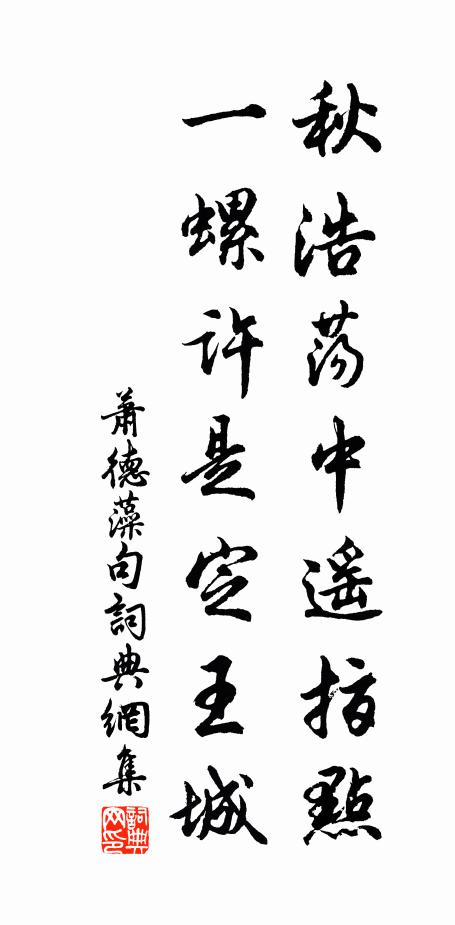 秋浩荡中遥指點
一螺許是定王城
萧德藻句詞典網集
詞典网印